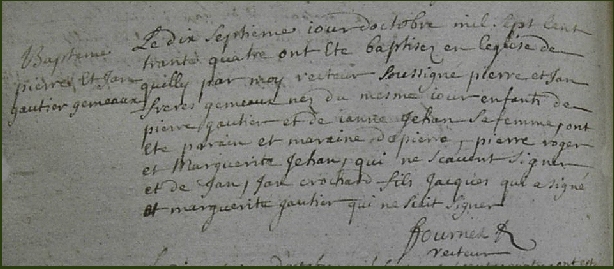 Baptesme
pierre et Jan
gautier gemeaux
Le dix septieme iour doctobre mil sept cent
trante quatre ont ete baptisez en leglise de
quilly par moy recteur soussigne pierre et Jan
freres gemeaux nez du mesme iour enfants de
pierre gautier et de ianne Jehan sa femme, ont
ete parain et maraine de pierre, pierre roger
et Marguerite Jehan, qui ne scauent signer
et de Jan, Jan crochard fils Jacques qui a signé
et marguerite gautier qui ne scait signer
recteur